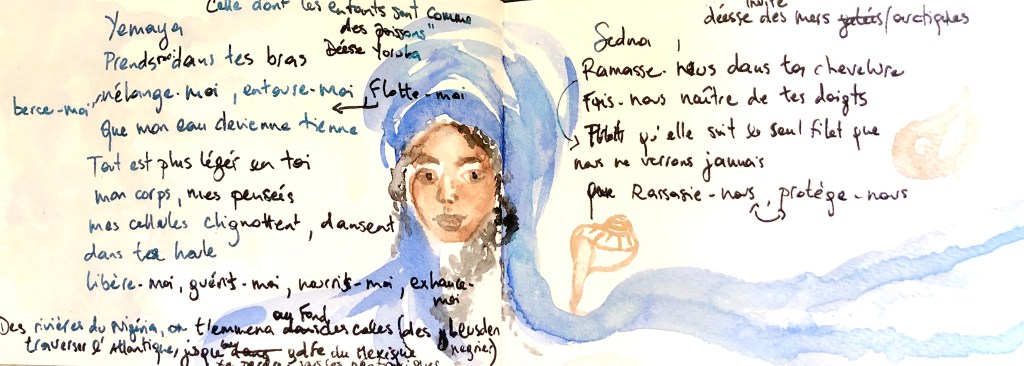 Celle dont les enfants sont comme
des poissons"
Déesse Yoruba
Yemaya
Prends-moi dans tes bras
berce-moi, mélange-moi, entoure-moi, Flotte-moi
que mon eau devienne tienne
Tout est plus léger en toi
mon corps, mes pensées
mes cellules clignottent, dansent
dans ta houle
libère-moi, guéris-moi, nourris-moi, exhauce-
moi
Des rivières du Nigéria, on t'emmena au Fond des cales (des
négrier)
traverser l'Atlantique, jusqu'au golfe du Mexique
Invite
déesse des mers gelées/arctiques
Sedna,
Ramasse-nous dans ta chevelure
Fais-nous naître de tes doigts
qu'elle soit le seul filet que
nous ne verrons jamais
Rassasie-nous, protège-nous